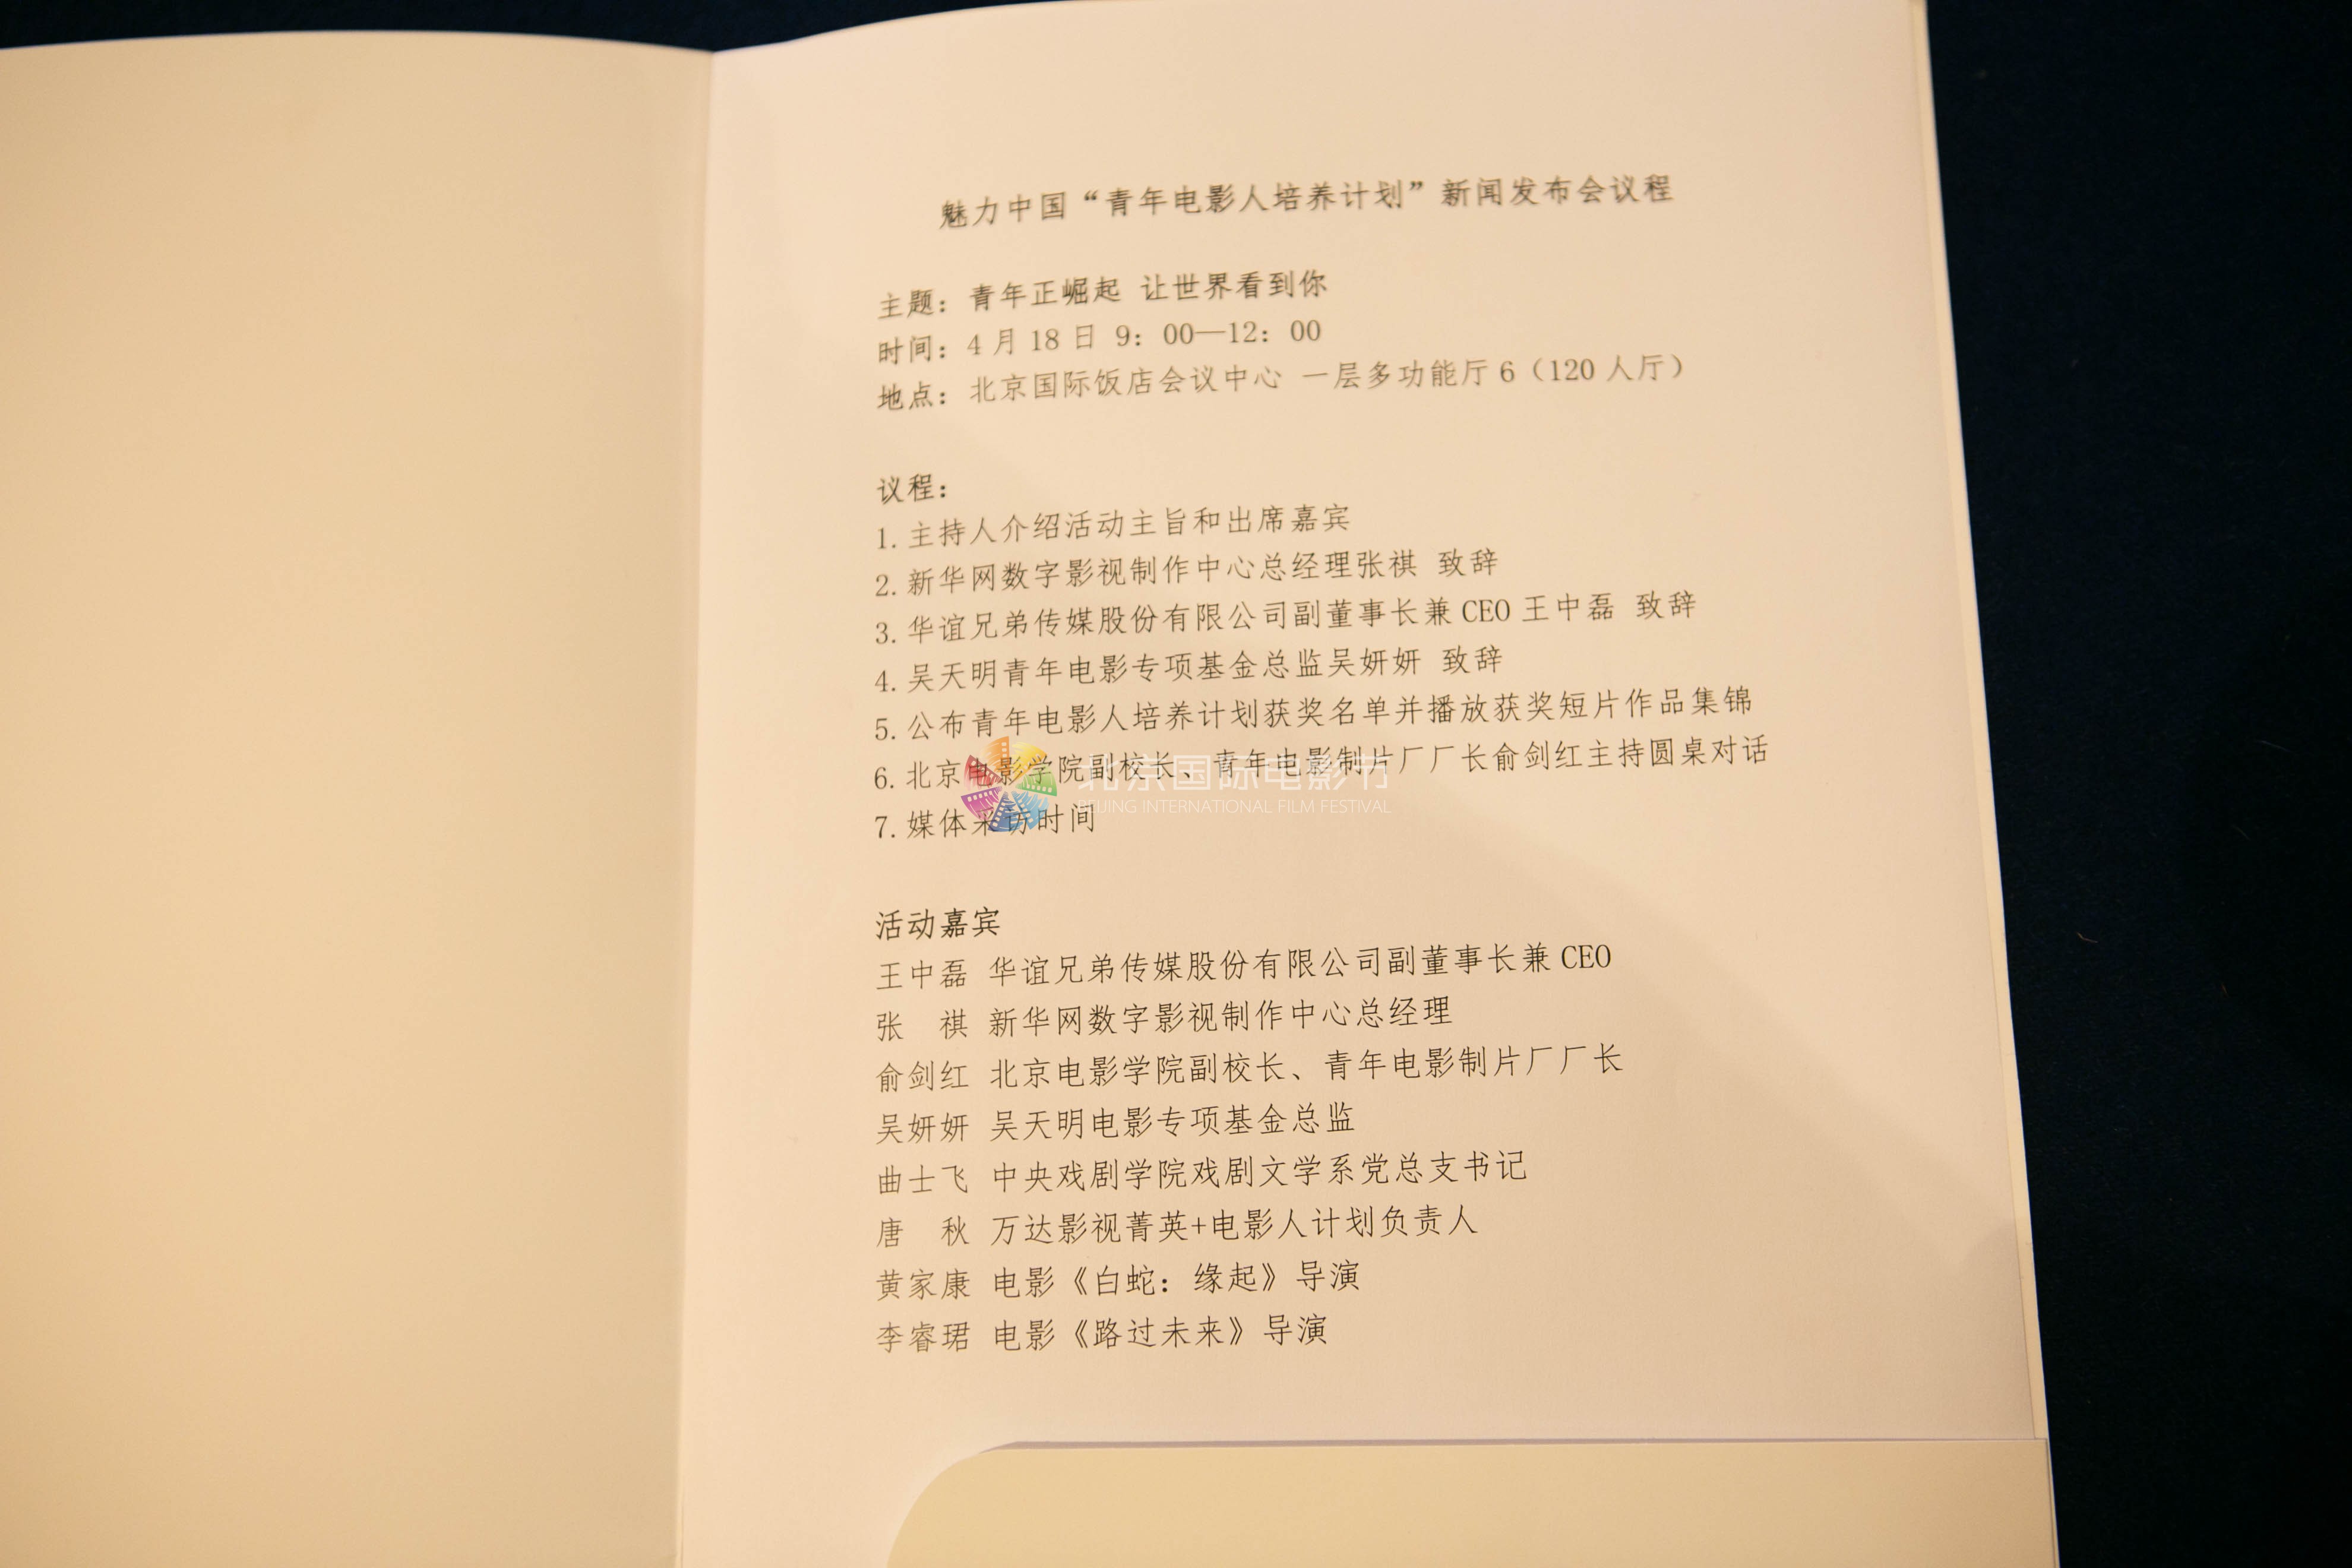 魅力中国“青年电影人培养计划”新闻发布会议程
主题：青年正崛起 让世界看到你
时间：4 月 18 日 9：00—12：00
地点：北京国际饭店会议中心 一层多功能厅 6（120 人厅）
议程：
1. 主持人介绍活动主旨和出席嘉宾
2. 新华网数字影视制作中心总经理张祺 致辞
3. 华谊兄弟传媒股份有限公司副董事长兼 CEO 王中磊 致辞
4. 吴天明青年电影专项基金总监吴妍妍 致辞
5. 公布青年电影人培养计划获奖名单并播放获奖短片作品集锦
6. 北京电影学院副校长、青年电影制片厂厂长俞剑红主持圆桌对话
北京国际电影节
BEIJING INTERNATIONAL FILM FESTIVAL
7. 媒体采访时间
活动嘉宾
王中磊 华谊兄弟传媒股份有限公司副董事长兼 CEO
张 祺 新华网数字影视制作中心总经理
俞剑红 北京电影学院副校长、青年电影制片厂厂长
吴妍妍 吴天明电影专项基金总监
曲士飞 中央戏剧学院戏剧文学系党总支书记
唐 秋 万达影视菁英+电影人计划负责人
黄家康 电影《白蛇：缘起》导演
李睿珺 电影《路过未来》导演